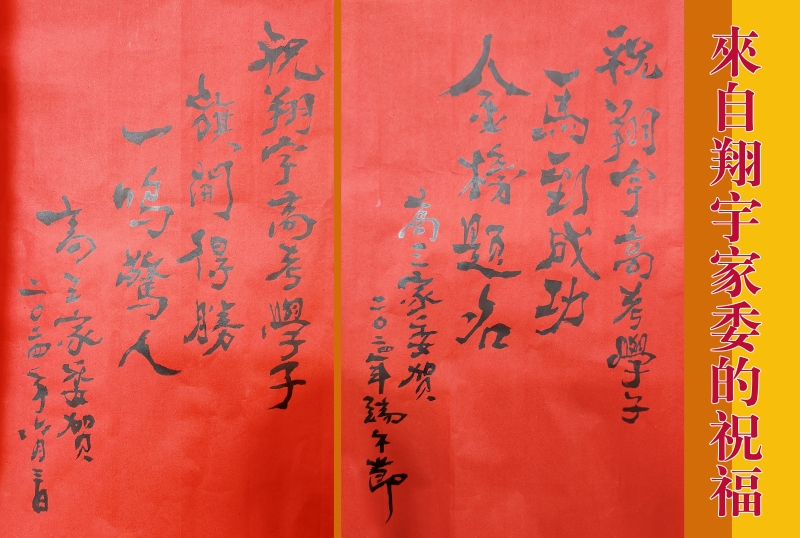 來自翔宇家委的祝福
祝翔宇高考學子
馬到成功
金榜題名
高三家委賀
二〇二四年端午節
祝翔宇高考學子
旗開得勝
一鳴驚人
高三家委賀
二〇二四年六月三日